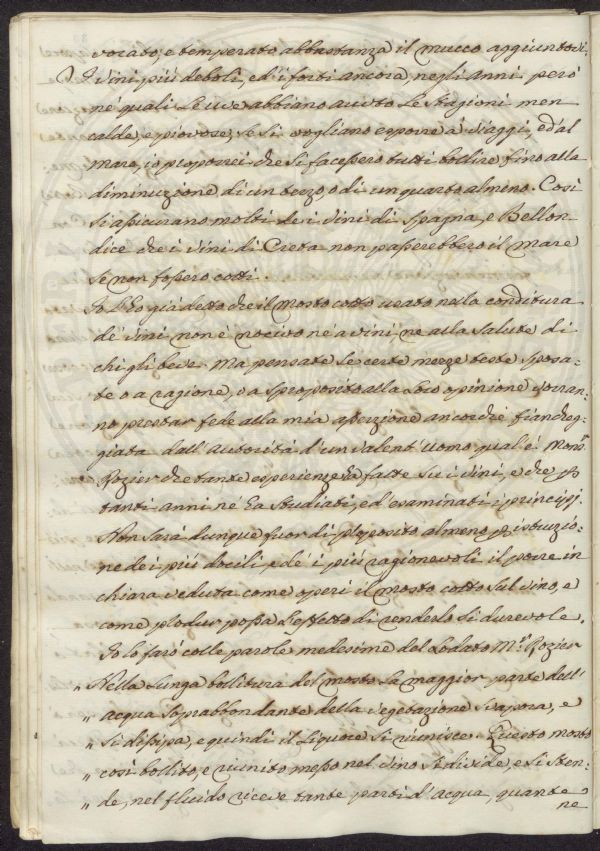 vocato, e temperato abbastanza il mucco aggiuntovi.
I vini più deboli, ed i forti ancora, negli anni però
ne' quali le uve abbiano avuto le stagioni men
calde, e piovose, se si vogliano esporre a' viaggi, ed al
mare, io proporrei che si facessero tutti bollire, fino alla
diminuzione di un terzo, o di un quarto almeno. Così
si assicurano molti de i vini di Spagna, e Bellon
dice che i vini di Creta non passerebbero il mare
se non fossero cotti.
Io l'ho già detto che il Mosto cotto usato nella conditura
de' vini non è nocivo nè a vini, nè alla salute di
chi gli beve. Ma pensate se certe mezze teste sposa-
te o a ragione, o a sproposito alla loro opinione vorran-
no prestar fede alla mia asserzione ancorchè fiancheg-
giata dall'Autorità d'un valent'Uomo qual'è Mons.r
Rozier che tante esperienze ha fatte su i vini, e che p
tanti anni nè ha studiati, ed esaminati i principj.
Non sarà dunque fuor di proposito almeno p istruzio-
ne de i più docili, e de' i più ragionevoli il porre in
chiara veduta come operi il mosto cotto sul vino, e
come produr possa l'effetto di renderlo sì durevole.
Io lo farò colle parole medesime del lodato M.r Rozier
„ Nella lunga bollitura del mosto la maggior parte dell'
„ acqua soprabbondante della vegetazione svapora, e
„ si dissipa, e quindi il liquore si riunisce. Questo mosto
„ così bollito, e riunito messo nel vino si divide, e si sten-
„ de, nel fluido riceve tante parti d'acqua, quante
ne